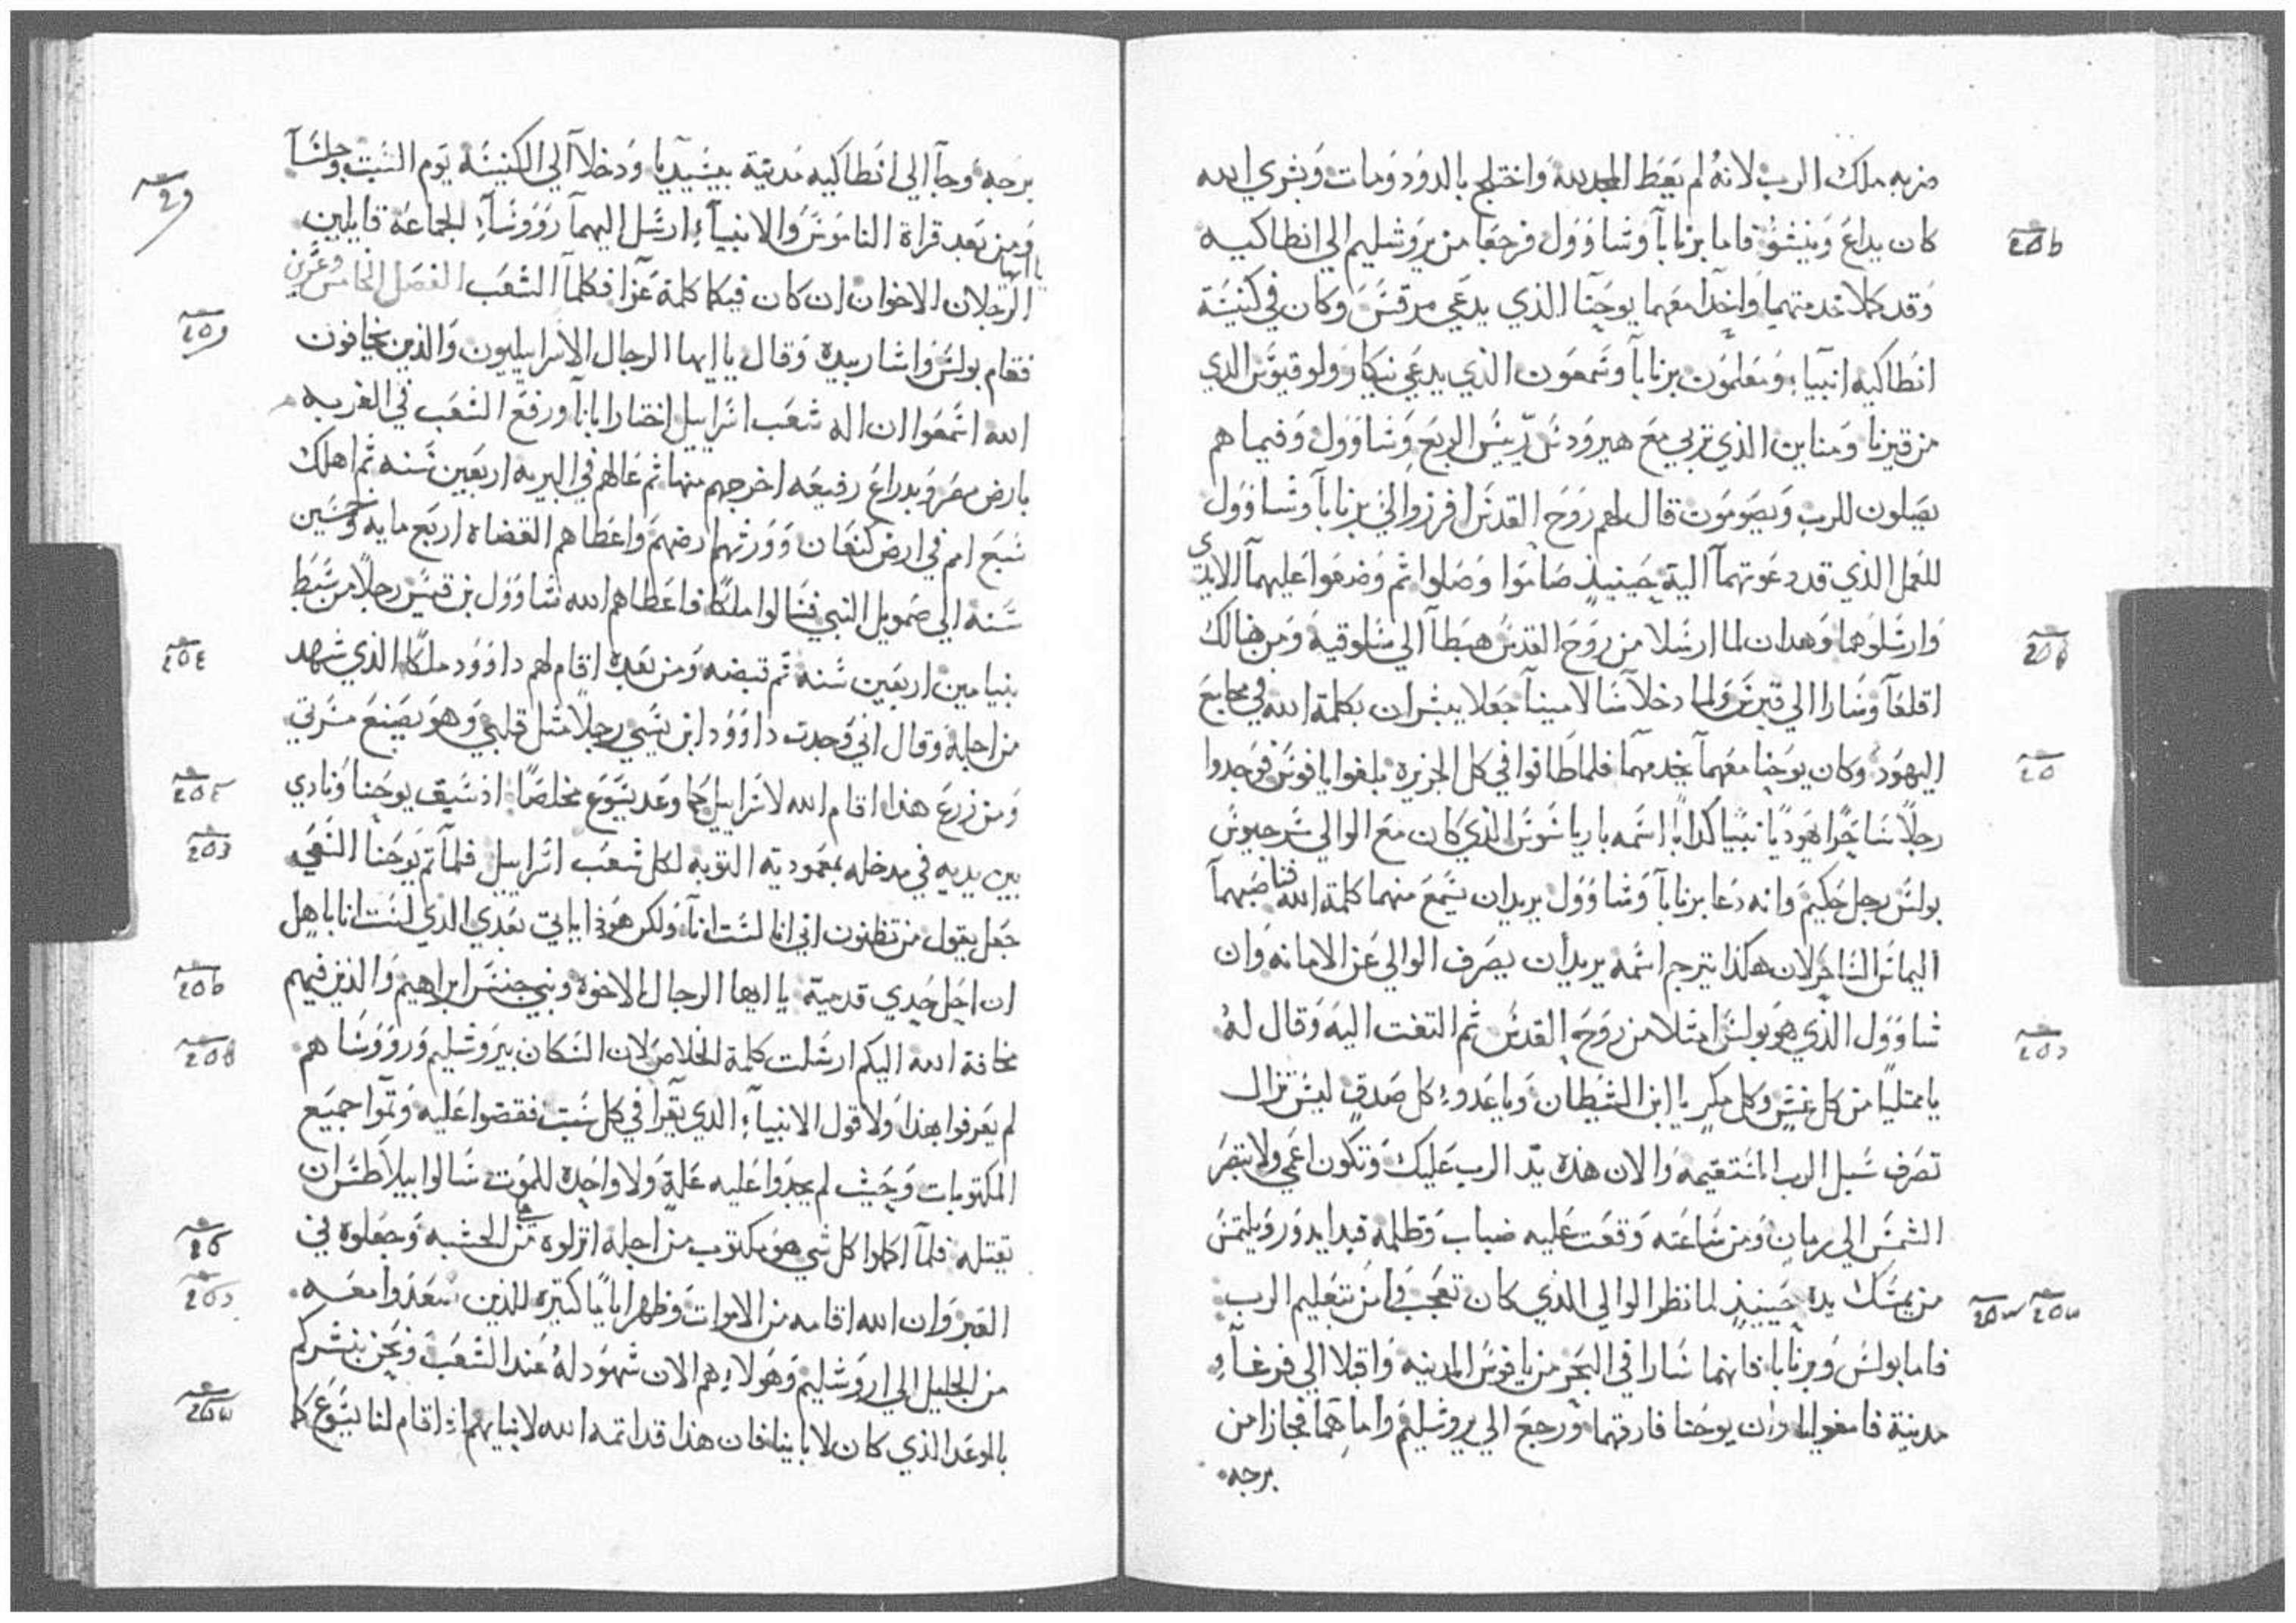 ضربه ملك الرب لانهُ لم يعَط المجد لله وَاختلج بالدوُد وَمات وَبشري الله
كان يداعَ وَينشوُ فاما برناباَ وَشاوَوَل فرجعَا من يروَشليم الي انطاكيه
وَقد كملا خدمتهما وَاخدَا معَهما يوحَنا الذي يدعَي مرقسَ وَكان في كنيسَة
انطاكيه انبياء وَمعَلموُن برناباَ وشمعَون الذي يدعَي نيكار وَلوقيوَس الدي
من قيرنا وَمناين الذي تربي معَ هيروَدسَ ريسَ الربعَ وَشاوَوَل وَفيما هم
يصَلون للرب وَيصَومَون قال لهم روَح القدسَ افرزوا لي برناباَ وشاوَوَل
للعَمل الذي قد دعَوتهماَ اليه حينيذٍ صَامَوا وَصَلوا ثم وَضعَوا عَليهماَ الايدي
وَارسَلوَهما وَهدان لما ارسَلا من روَحَ القدسَ هبَطاَ الي سَلوقيه وَمن هنالك
اقلعَاَ وَسَارا الي قبرسَ وَلما دخلاَ سَالامينا جَعَلا يبشران بكلمة الله في مجامعَ
اليهوَد وَكان يوحَنا معَهماَ يخدمهماَ فلما طافوا في كل الجزيره بلغوا يافوسَ فوَجدوا
رجلاً سَاحَرًا يهوَديًا نبيًا كدابًا اسَمه باريا سَوسَ الذي كان معَ الوالي سَرجيوسَ
بولسَ رجل حَكيم وَانه دعَا برناباَ وَشاوَوَل يريدان يسَمعَ منهما كلمة الله فناصَبهماَ
اليماسَ السَاحَر لان هكذا يترجم اسَمه يريدان يصَرف الوالي عَن الامانه وَان
شاوَوَل الذي هوَ بولسَ امتلا من روَحَ القدسَ ثم التفت اليه وَقال لهُ
يا ممتليًا من كل غشٍ وَكل مكرٍ يا ابن الشيطان وَيا عَدوء كل صَدقٍ ليسَ تزال
تصَرف سَبل الرب المسَتقيمه وَالان هذه يد الرب عَليك وَتكون اعَمي وَلا تبصَر
الشمسَ الي زمان وَمن سَاعَته وَقعَت عَليه ضباب وَظلمة فبدا يدوَر وَيلتمسَ
من يمسَك يده حَينيذٍ لما نظر الوالي الذي كان تعَجب وَامن بتعَليم الرب
فاما بولسَ وَبرنابا فانهما سَارا في البحَر من يافوسَ المدينه وَاقبلا الي فرغاَء
مدينة فامفوليا وان يوحَنا فارقهما وَرجعَ الي يروَشليم وَاما هما فجازا من
برجه
برَجه وَجاَ الي انَطاكيه مَدينة بيسَيديا وَدخلاَ الي الكنيسَه يَوم السَبت وَجلسَاَ
وَمن بعَد قراة الناموَسَ وَالانبياَء ارسَل اليهماَ روَوسَاَء الجماعَة قايلين
يا ايها الرجلان الاخوان ان كان فيكما كلمة عَزا فكلماَ الشعَب الفصَل الخامسَ وعشرين
فقام بولسَ وَاشار بيده وَقال يا ايها الرجال الاسَراييليون وَالذين يخافون
الله اسَمعَوا ان اله شعَب اسَراييل اختار اباناَ وَرفعَ الشعَب في الغربه
بارض مصَر وَبدراعَ رفيعَه اخرجهم منها ثم عَالهم في البريه اربعَين سَنه ثم اهلك
سَبعَ امم في ارض كنعَان وَوَرثهم ارضهم وَاعَطاهم القضاه اربعَ مايه وَخمسَين
سَنه الي صَمويل النبي فسَالوا ملكًا فاعَطاهم الله شاوَوَل بن قيسَ رجلاً من سَبَط
بنيامين اربعَين سَنه ثم قبضه وَمن بعَده اقام لهم داوَوَد ملكًا الذي شهد
من اجله وَقال اني وَجدت داوَوَد ابن يسَي رجلاً مثل قلبي وَهوَ يصَنعَ مسَرتي
وَمن زرعَ هذا اقام الله لاسَراييل كما وَعَد يسَوَعَ مخلصًا اذ سَبق يوحَنا وَنادي
بين يديه في مدخله بمعَمودية التوبه لكل شعَب اسَراييل فلماَ تم يوحَنا السَعَي
جَعَل يقول من تظنون اني انا لسَت اناَ وَلكن هوَذا ياتي بعَدي الذي لسَت انا باهل
ان احَل حَدي قدميه يا ايها الرجال الاخوه وَبني جنسَ ابراهيم وَالذين فيهم
مخافة الله اليكم ارسَلت كلمة الخلاص لان السَكان بيروَشليم وَروَوَسَاهم
لم يعَرفوا بهذا وَلا قول الانبياَء الذي يقَرا في كل سَبت فقضوا عَليه وَتموا جميَعَ
المكتوبات وَحَيث لم يجدَوا عَليه عَلة وَلا وَاحَده للموَت سَالوا بيلاطسَ ان
يقتله فلماَ اكملوا كل شي هوَ مكتوب من اجله انزلوه من الخشبه وَجعَلوه في
القبر وَان الله اقامه من الاموات وَظهر ايامًا كثيره للذين صَعَدوا معَه
من الجليل الي اروَشليم وَهوَلاء هم الان شهوَد لهُ عَند الشعَب وَنحَن نبشركم
بالوعَد الذي كان لاباينا فان هذا قد اتمه الله لابنايهم اذ اقام لنا يسَوَعَ كما